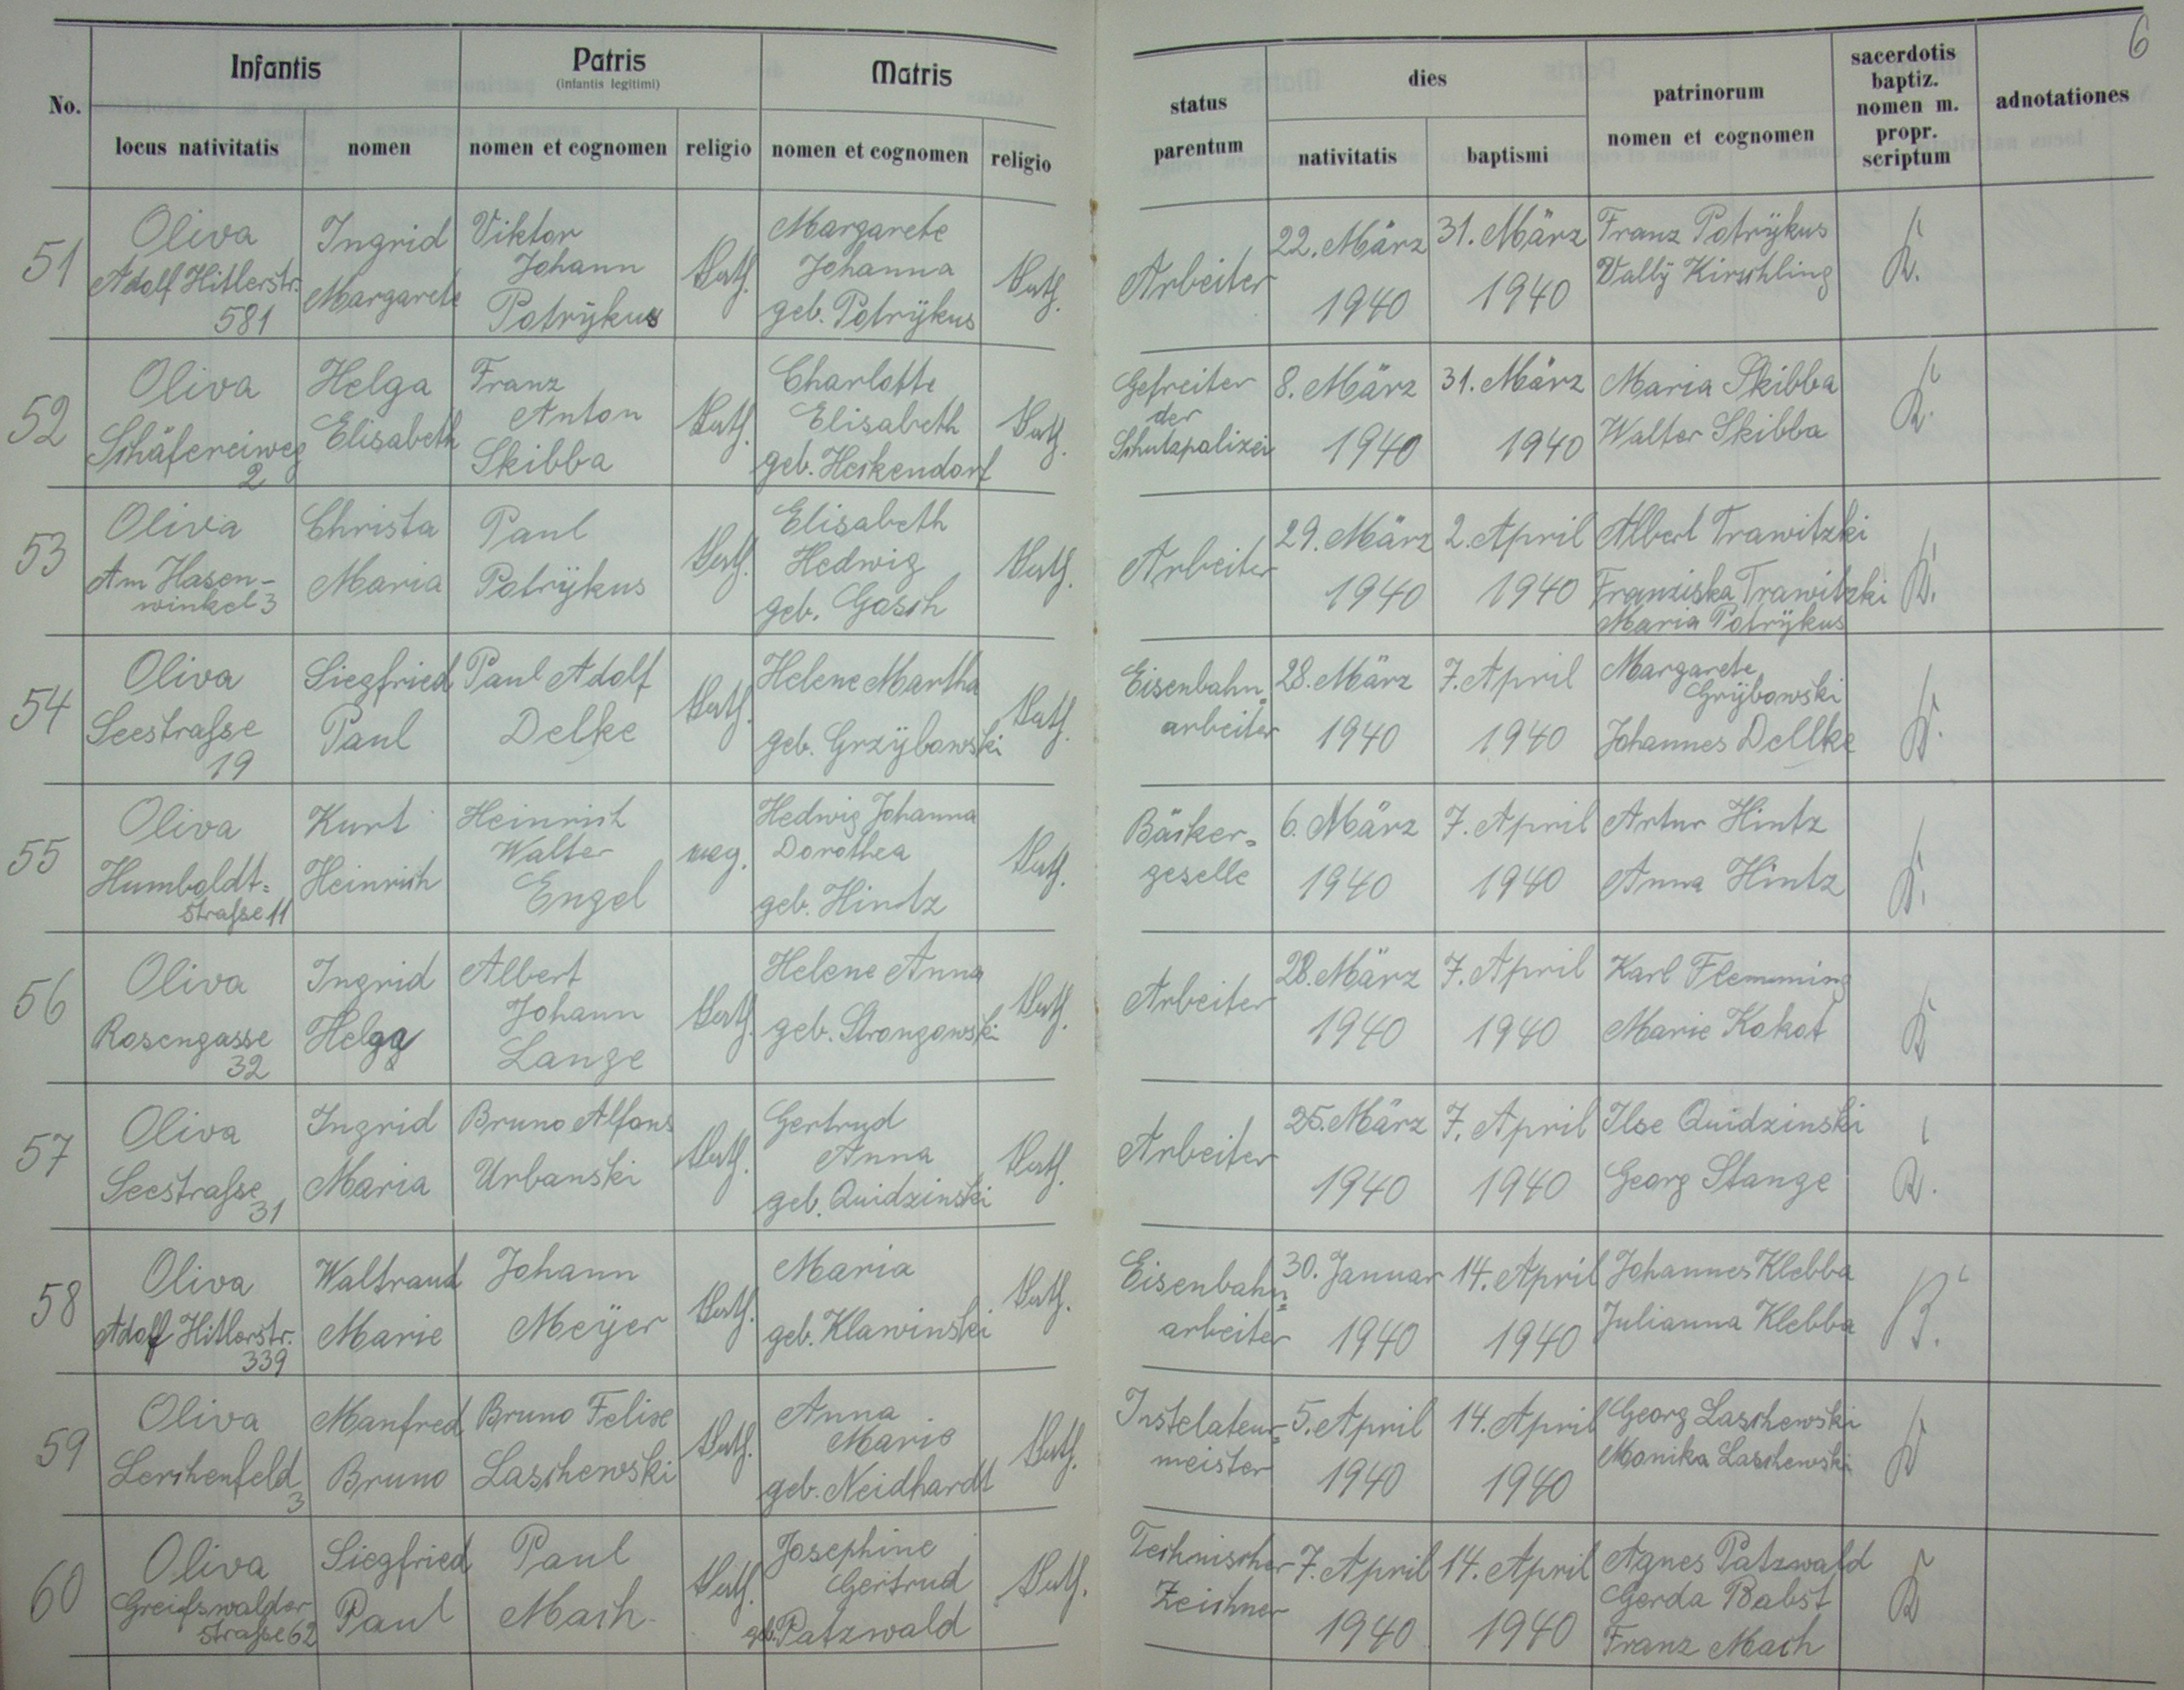 6
No.
Infantis
Patris
(infantis legitimi)
Matris
status parentum
dies
patrinorum
nomen et cognomen
sacerdotis
baptiz.
nomen m.
propr.
scriptum
adnotationes
locus nativitatis
nomen
nomen et cognomen
religio
nomen et cognomen
religio
nativitatis
baptismi
51
Oliva
Adolf Hitlerstr.
581
Ingrid
Margarete
Viktor
Johann
Potrÿkus
kath.
Margarete
Johanna
geb. Potrÿkus
kath.
Arbeiter
22. März
1940
31. März
1940
Franz Potrÿkus
Vallÿ Kirschling
K.
52
Oliva
Schäfereiweg
2
Helga
Elisabeth
Franz
Anton
Skibba
kath.
Charlotte
Elisabeth
geb. Heckendorf
kath.
Gefreiter
der
Schutzpolizei
8. März
1940
31. März
1940
Maria Skibba
Walter Skibba
K.
53
Oliva
Am Hasen-
winkel 3
Christa
Maria
Paul
Potrÿkus
kath.
Elisabeth
Hedwig
geb. Gasch
kath.
Arbeiter
29. März
1940
2. April
1940
Albert Trawitzki
Franziska Trawitzki
Maria Potrÿkus
K.
54
Oliva
Seestraſse
19
Siegfried
Paul
Paul Adolf
Delke
kath.
Helene Martha
geb. Grzÿbowski
kath.
Eisenbahn=
arbeiter
28. März
1940
7. April
1940
Margarete
Grÿbowski
Johannes Dellke
K.
55
Oliva
Humboldt=
straſse 11
Kurt
Heinrich
Heinrich
Walter
Engel
Hedwig Johanna
Dorothea
geb. Hintz
kath.
Bäcker=
geselle
6. März
1940
7. April
1940
Artur Hintz
Anna Hintz
K.
56
Oliva
Rosengasse
32
Ingrid
Helga
Albert
Johann
Lange
kath.
Helene Anna
geb. Strongowski
kath.
Arbeiter
28. März
1940
7. April
1940
Karl Flemming
Marie Kokot
K
57
Oliva
Seestraſse
31
Ingrid
Maria
Bruno Alfons
Urbanski
kath.
Gertrud
Anna
geb. Quidzinski
kath.
Arbeiter
25. März
1940
7. April
1940
Ilse Quidzinski
Georg Stange
K.
58
Oliva
Adolf Hitlerstr.
339
Waltraud
Marie
Johann
Meÿer
kath.
Maria
geb. Klawinski
kath.
Eisenbahn=
arbeiter
30. Januar
1940
14. April
1940
Johannes Klebba
Julianna Klebba
B.
59
Oliva
Lerchenfeld
3
Manfred
Bruno
Bruno Felix
Laschewski
kath.
Anna
Marie
geb. Neidhardt
kath.
Instelateur=
meister
5. April
1940
14. April
1940
Georg Laschewski
Monika Laschewski
K
60
Oliva
Greifswalder
straſse 62
Siegfried
Paul
Paul
Mach
kath.
Josephine
Gertrud
geb. Patzwald
kath.
Technischer
Zeichner
7. April
1940
14. April
1940
Agnes Patzwald
Gerda Babst
Franz Mach
K